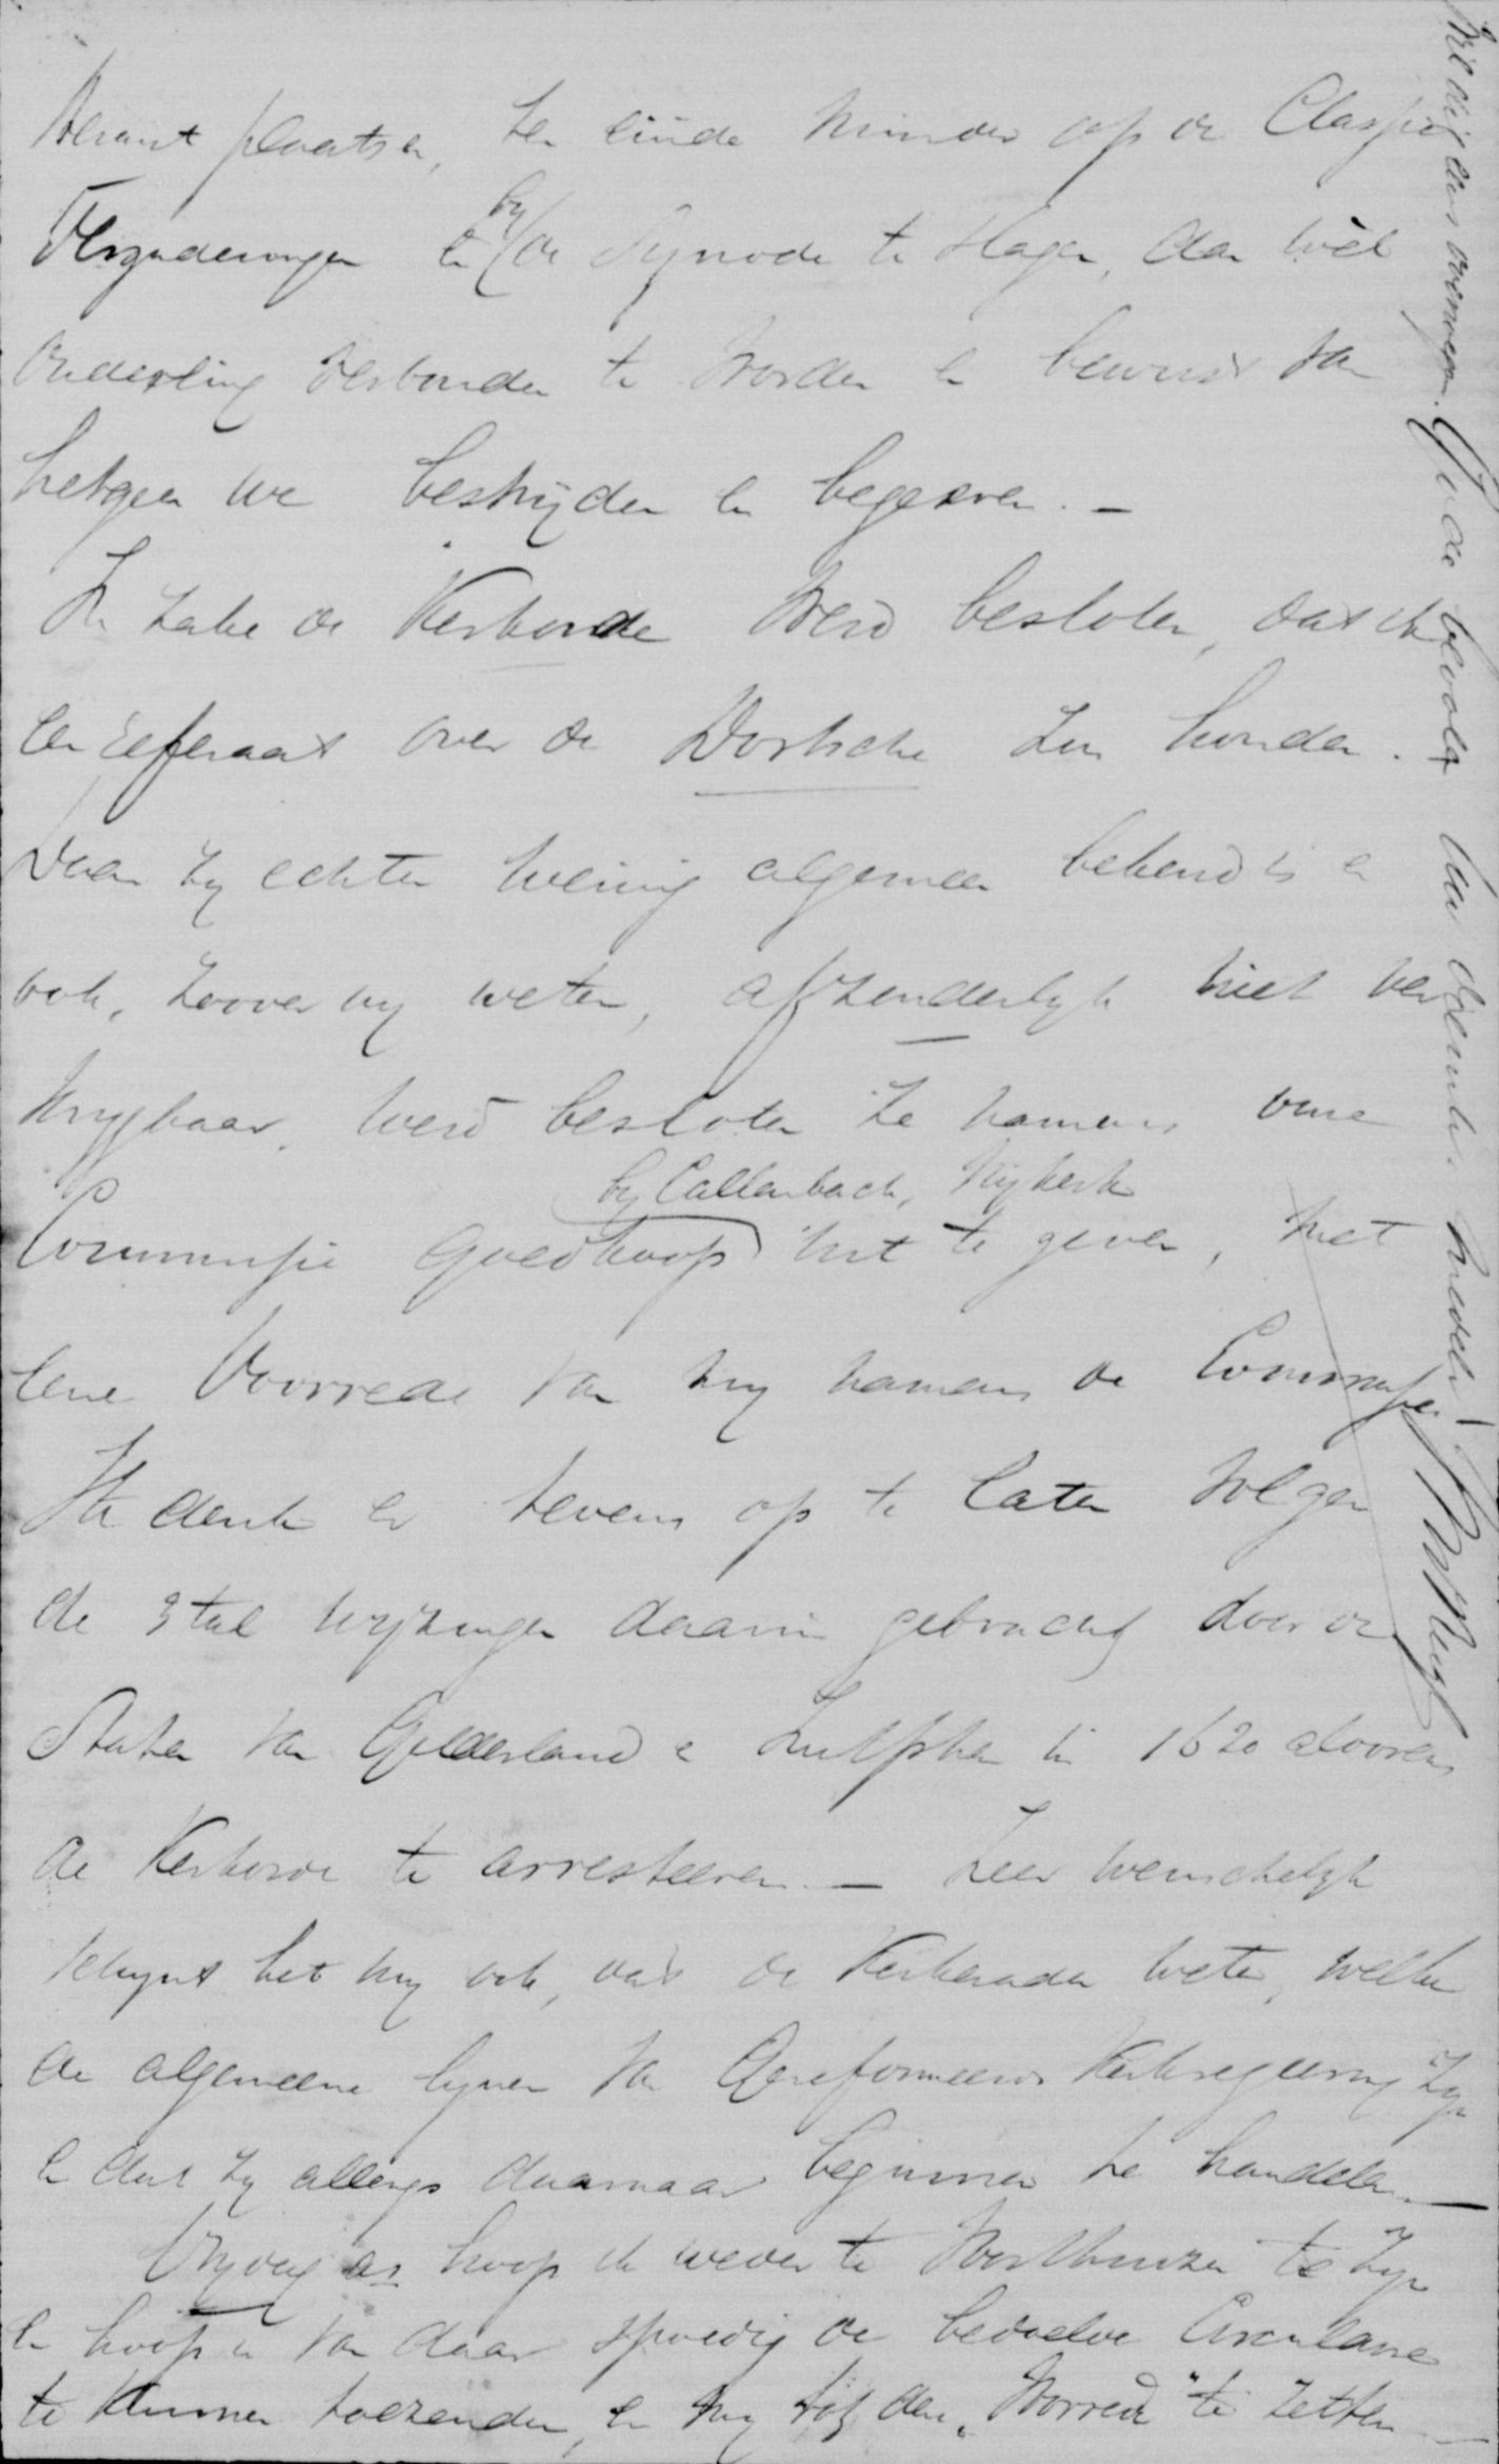 verant plaatsen, ten einde minder op de Classic.
Vergaderingen en by de Synode te Hage, dan wèl
onderling verbonden te worden en bewust van
hetgeen we bestrijden en begeeren. –
In zake de Kerkorde werd besloten, dat ik
een referaat over de Dortsche zou houden.
Daar zy echter weinig algemeen bekend is en
ook, zoover wy weten, afzonderlyk niet ver
krygbaar, werd besloten ze namens onze
Commissie goedkoop by Callenbach, Nykerk uit te geven, met
eene Voorrede van my namens de Commissie. –
Ik denk er tevens op te laten volgen
de 3tal wyzingen daarin gebracht door de
Staten van Gelderland en Zutphen in 1620 alvorens
de Kerkorde te arresteeren. – Zeer wenschelyk
schynt het my ook, dat de Kerkeraden weten, welke
de algemeene lynen van Gereformeerde Kerkregeering zyn
en dat zy allengs daarnaar beginnen te handelen. –
Vrydag as hoop ik weder te Voorthuizen te zyn
en hoop u van daar spoedig de bedoelde Circulaire
te kunnen toezenden, en my tot de „Voorrede" te zetten –